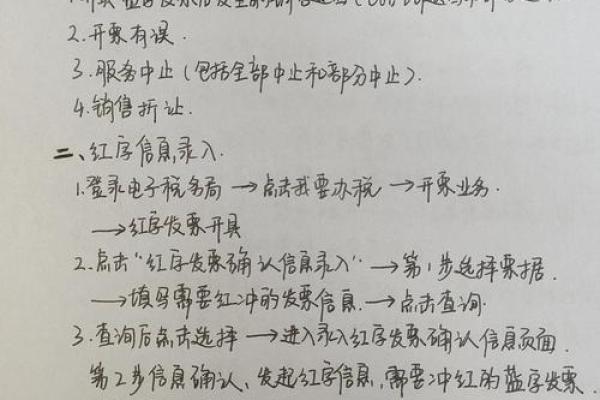 2.开票有误.
3.服务中止(包括全部中止和部分中止).
4.销售折让.
二、红字信息录入.
1.登录电子税务局→点击我要办税→开票业务.
→红字发票开具
2.点击“红字发票确认信息录入”→第1步选择票据.
→填写需要红冲的发票信息.→点击查询.
3.查询后点击选择→进入录入红字发票确认信息页面.
第2步信息确认、发起红字信息,需要冲红的蓝字发票